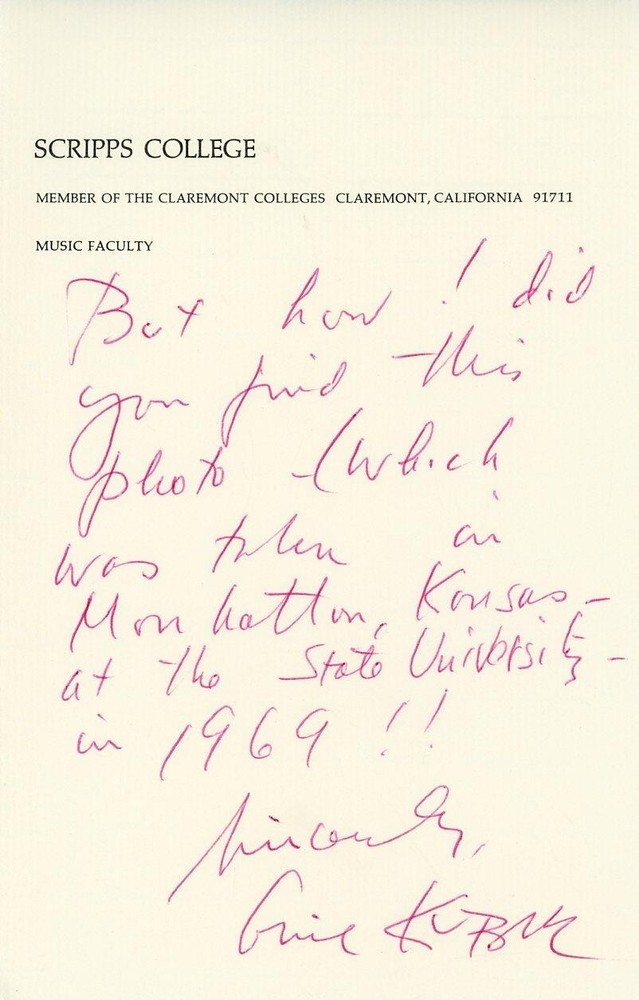 SCRIPPS COLLEGE
MEMBER OF THE CLAREMONT COLLEGES CLAREMONT, CALIFORNIA 91711
MUSIC FACULTY
But how ! did
you find this
photo – (which
was taken in
Manhattan, Kansas –
at the State University –
in 1969 !!
Sincerely,
Gail Kubik